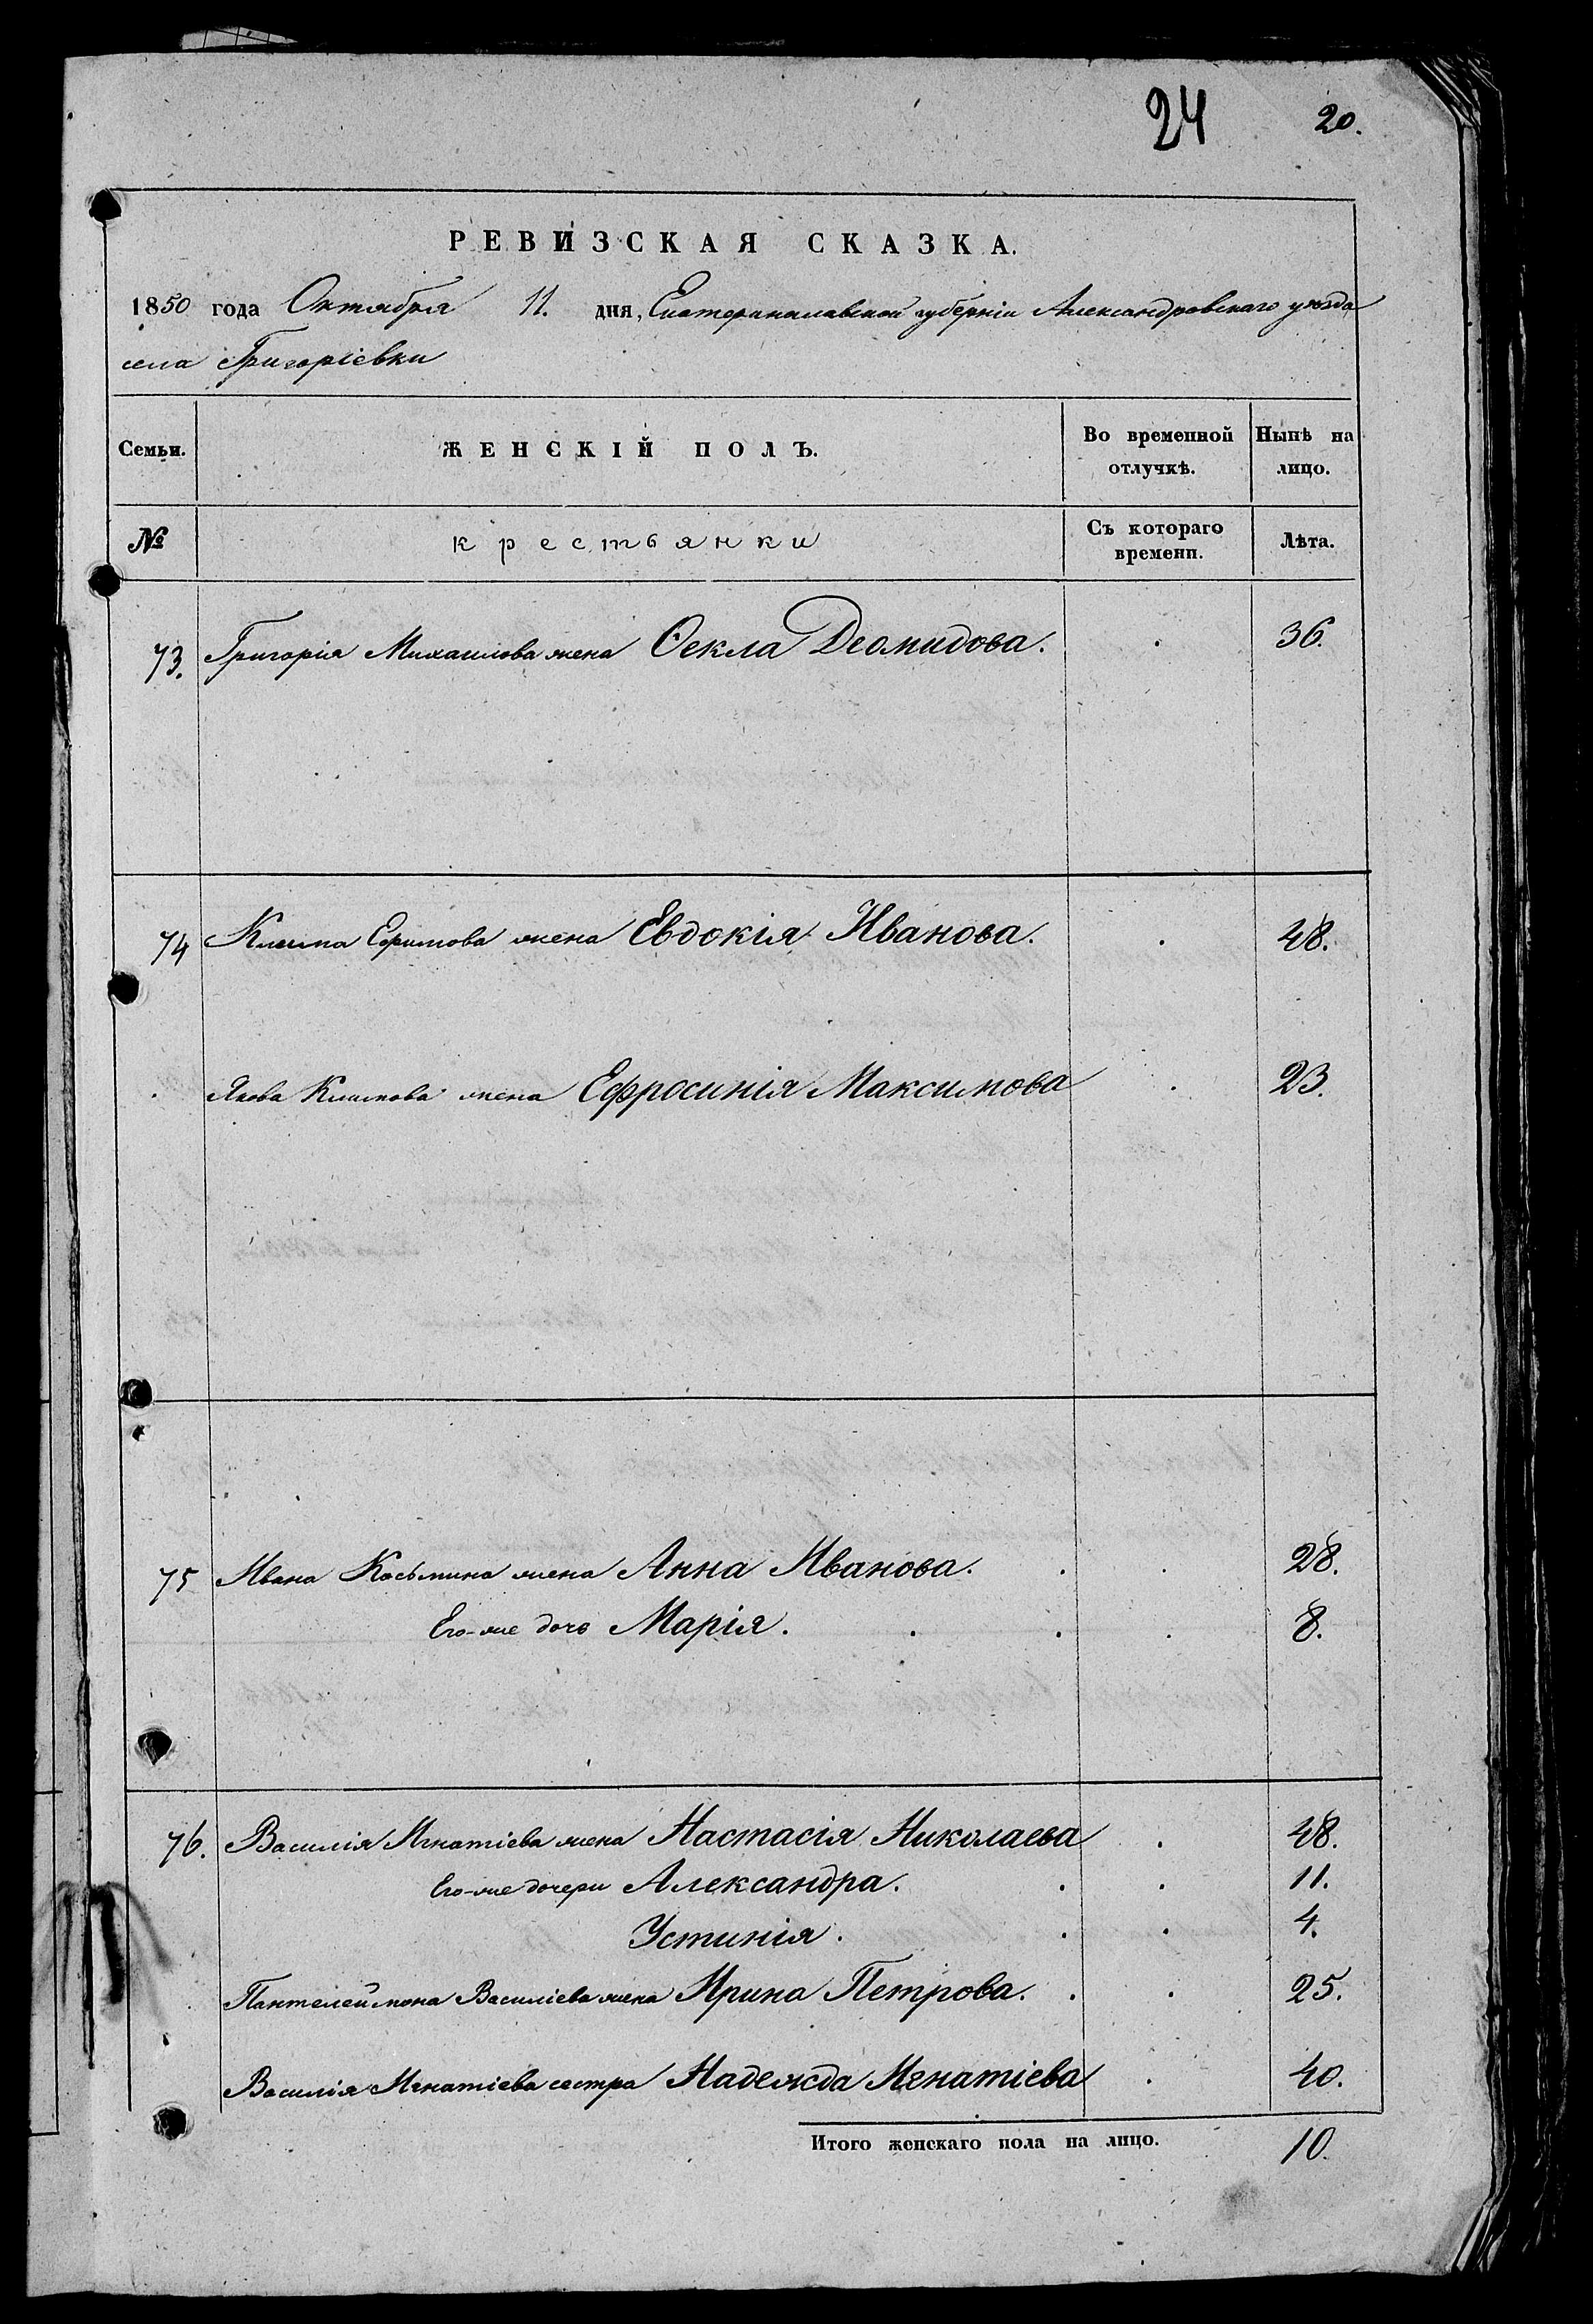 24 20.
РЕВИЗСКАЯ СКАЗКА.
1850 года Октября 11. дня, Екатеринославской губерніи Александровскаго уѣзда
села Григоріевки
Семьи. ЖЕНСКІЙ ПОЛЪ. Во временной отлучкѣ. Нынѣ на лицо.
№ крестьянки Съ котораго времени. Лѣта.
73. Григорія Михаилова жена Ѳекла Деомидова. 36.
74 Клима Ефимова жена Евдокія Иванова. 48.
Якова Климова жена Ефросинія Максимова 23.
75 Ивана Косьмина жена Анна Иванова. 28.
Его-же дочь Марія. 8.
76. Василія Игнатіева жена Настасія Николаева 48.
Его-же дочери Александра. 11.
Устинія. 4.
Пантелеймона Василіева жена Ирина Петрова. 25.
Василія Игнатіева сестра Надежда Игнатіева 40.
Итого женскаго пола на лицо. 10.